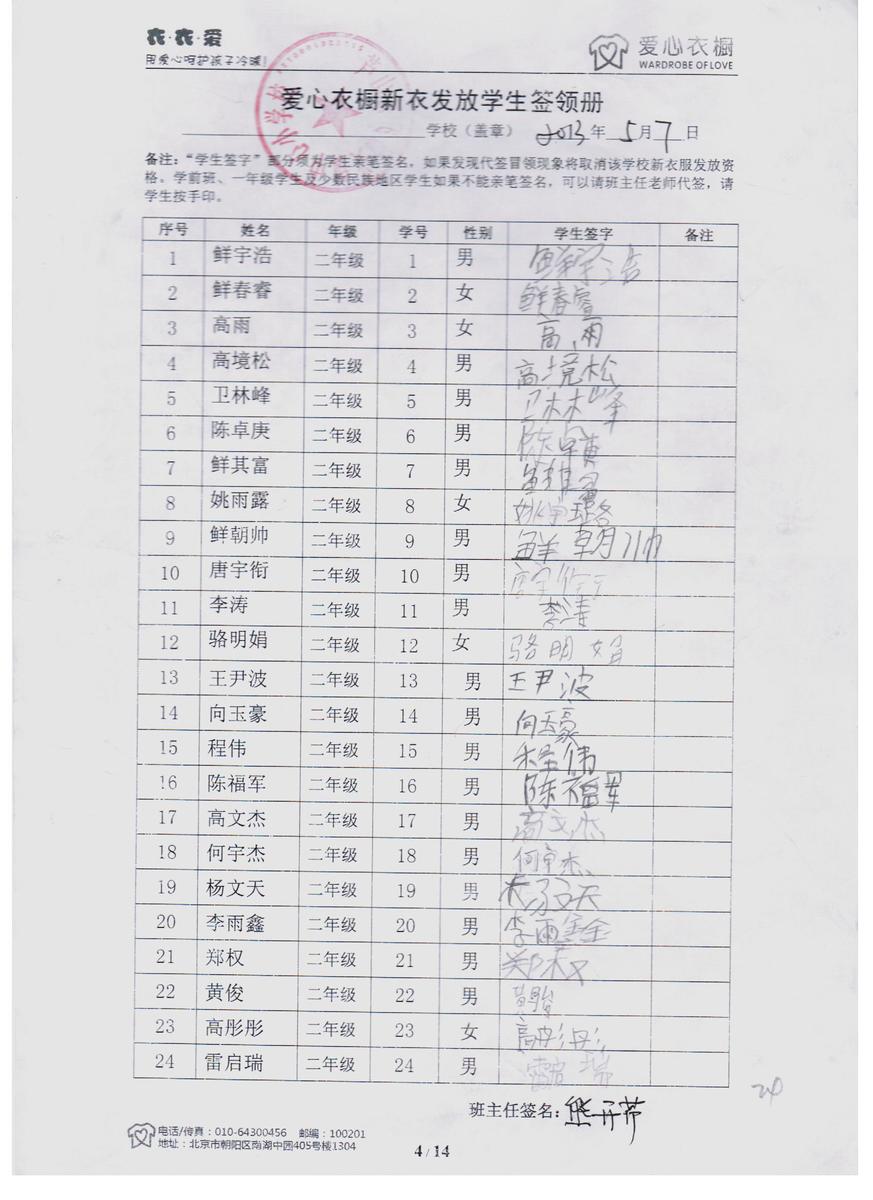 衣·衣·爱
用爱心呵护孩子冷暖!
爱心衣橱
WARDROBE OF LOVE
爱心衣橱新衣发放学生签领册
学校（盖章） 2013年 5月 7日
备注：“学生签字”部分须为学生亲笔签名，如果发现代签冒领现象将取消该学校新衣服发放资
格。学前班、一年级学生及少数民族地区学生如果不能亲笔签名，可以请班主任老师代签，请
学生按手印。
序号 姓名 年级 学号 性别 学生签字 备注
1 鲜宇浩 二年级 1 男 鲜宇浩
2 鲜春睿 二年级 2 女 鲜春睿
3 高雨 二年级 3 女 高雨
4 高境松 二年级 4 男 高境松
5 卫林峰 二年级 5 男 卫林峰
6 陈卓庚 二年级 6 男 陈卓
7 鲜其富 二年级 7 男 鲜其富
8 姚雨露 二年级 8 女 姚雨露
9 鲜朝帅 二年级 9 男 鲜朝帅
10 唐宇衔 二年级 10 男 唐宇
11 李涛 二年级 11 男 李涛
12 骆明娟 二年级 12 女 骆明娟
13 王尹波 二年级 13 男 王尹波
14 向玉豪 二年级 14 男 向玉豪
15 程伟 二年级 15 男 程伟
16 陈福军 二年级 16 男 陈福军
17 高文杰 二年级 17 男 高文杰
18 何宇杰 二年级 18 男 何宇杰
19 杨文天 二年级 19 男 杨文天
20 李雨鑫 二年级 20 男 李雨鑫
21 郑权 二年级 21 男 郑权
22 黄俊 二年级 22 男 黄俊
23 高彤彤 二年级 23 女 高彤彤
24 雷启瑞 二年级 24 男 雷启瑞
24
班主任签名：熊开芹
电话/传真：010-64300456 邮编：100201
地址：北京市朝阳区南湖中园405号楼1304
4 / 14